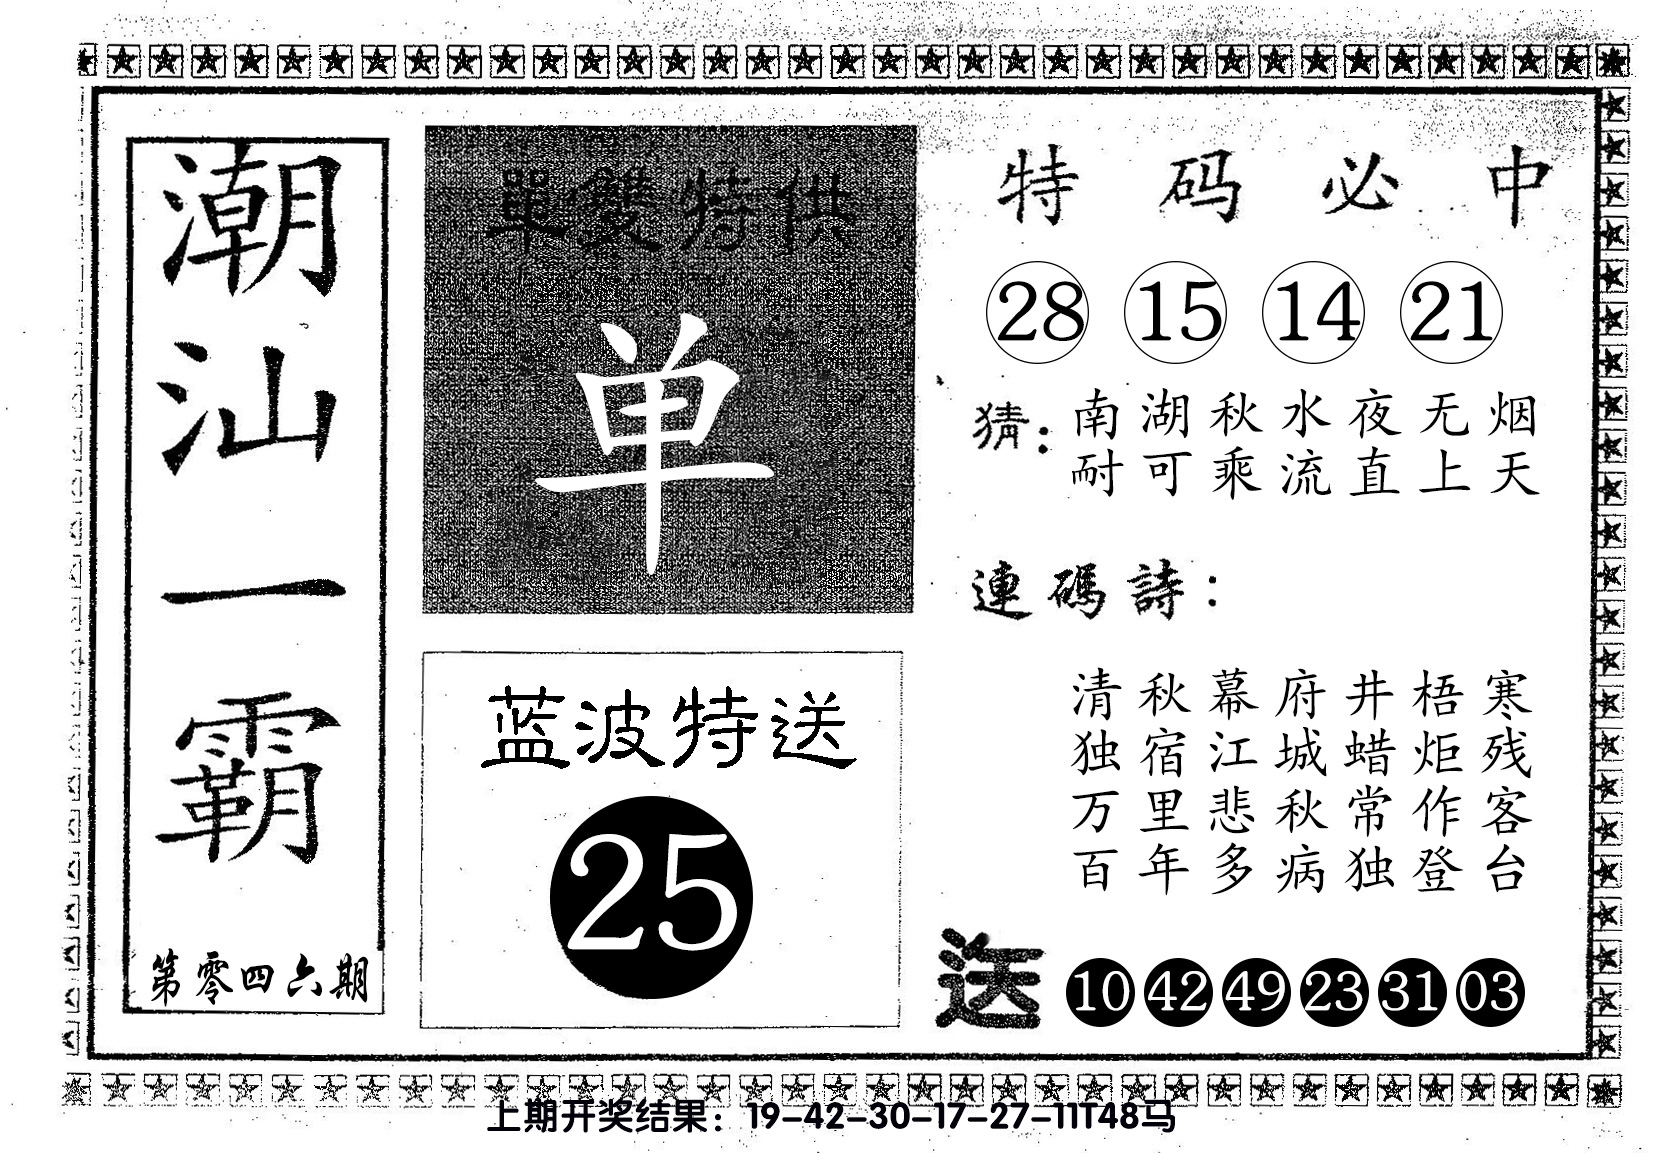 潮汕一霸
第零四六期
單雙特供
单
蓝波特送
25
特码必中
28 15 14 21
猜：
南湖秋水夜无烟
耐可乘流直上天
連碼詩：
清秋幕府井梧寒
独宿江城蜡炬残
万里悲秋常作客
百年多病独登台
送 10 42 49 23 31 03
上期开奖结果：19-42-30-17-27-11T48马